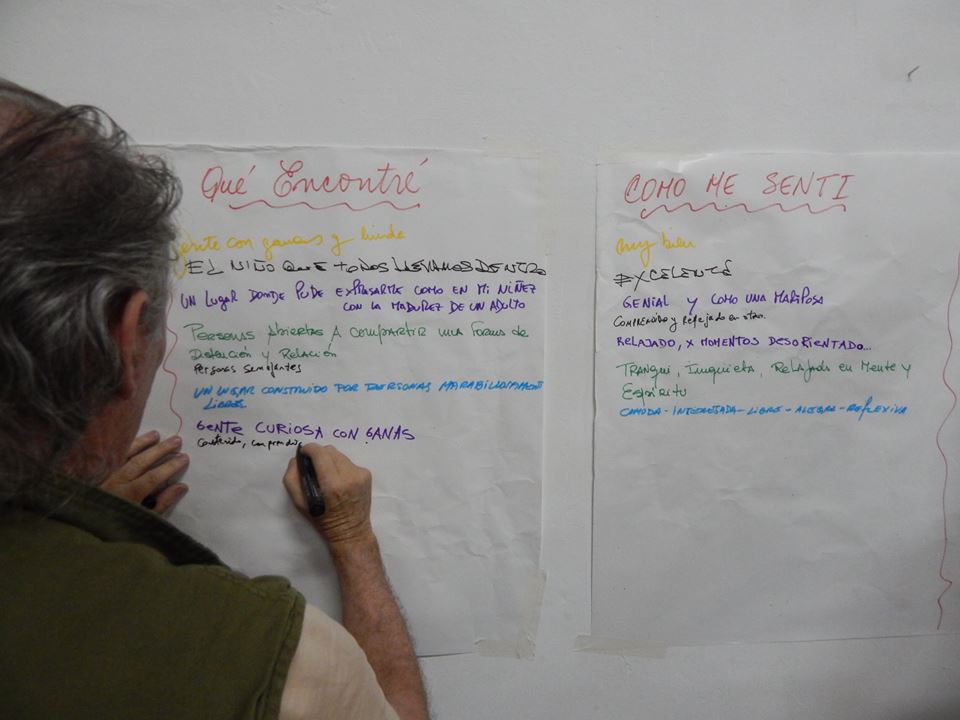 Qué Encontré
gente con ganas y linda
EL NIÑO QUE TODOS LLEVAMOS DENTRO
UN LUGAR DONDE PUDE EXPRESARME COMO EN MI NIÑEZ
CON LA MADUREZ DE UN ADULTO
PERSONAS Abiertas A COMPARTIR una forma de
Distención y Relación
Personas Semejantes
UN LUGAR CONSTRUIDO POR PERSONAS
LIBRES
GENTE CURIOSA CON GANAS
Contenido,
COMO ME SENTI
muy bien
EXCELENTE
GENIAL Y COMO UNA MARIPOSA
COMPRENDIDO y Reflejado en otro.
RELAJADO, X MOMENTOS DESORIENTADO...
TRANQUI, Inquieta, Relajada en Mente y
Espíritu
COMODA - INTERESADA - LIBRE - ALEGRE - REFLEXIVA